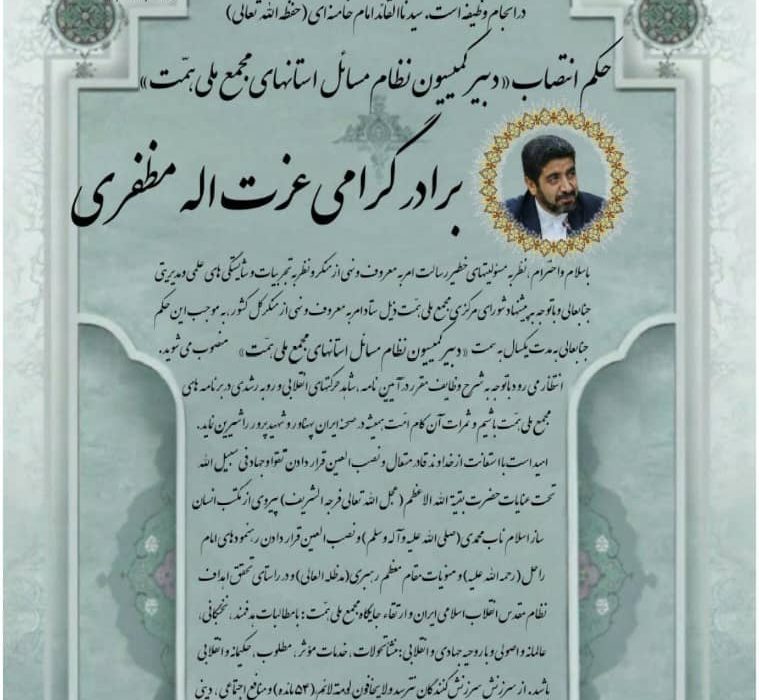 در انجام وظیفه است. سیدنا القائد امام خامنه ای (حفظه الله تعالی)
حکم انتصاب «دبیر کمیسیون نظام مسائل استانهای مجمع ملی همّت»
برادر گرامی عزت اله مظفری
باسلام و احترام، نظر به مسئولیتهای خطیر رسالت امر به معروف و نهی از منکر و نظر به تجربیات و شایستگی های علمی و مدیریتی
جنابعالی و با توجه به پیشنهاد شورای مرکزی مجمع ملی همّت ذیل ستاد امر به معروف و نهی از منکر کل کشور، به موجب این حکم
جنابعالی به مدت یکسال به سمت «دبیر کمیسیون نظام مسائل استانهای مجمع ملی همّت» منصوب می شوید.
انتظار می رود با توجه به شرح وظایف مقرر در آیین نامه، شاهد حرکتهای انقلابی و رو به رشدی در برنامه های
مجمع ملی همّت باشیم و ثمرات آن کام امّت همیشه در صحنه ایران پهناور و شهید پرور را شیرین نماید.
امید است با استعانت از خداوند قادر متعال و نصب العین قرار دادن تقوا و جهاد فی سبیل الله
تحت عنایات حضرت بقیة الله الاعظم (عجل الله تعالی فرجه الشریف) پیروی از مکتب انسان
ساز اسلام ناب محمدی (صلی الله علیه و آله وسلم) و نصب العین قرار دادن رهنمودهای امام
راحل (رحمه الله علیه) و منویات مقام معظم رهبری (مدظله العالی) و در راستای تحقق اهداف
نظام مقدس انقلاب اسلامی ایران و ارتقاء جایگاه مجمع ملی همّت: با مطالبات هدفمند، نخبگانی،
عالمانه و اصولی و با روحیه جهادی و انقلابی: منشا تحولات، خدمات مؤثر، مطلوب، حکیمانه و انقلابی
باشد. از سرزنش سرزنش کنندگان نترسد ولا یخافون لومة لائم (۵۴ مائده) و منافع اجتماعی، دینی